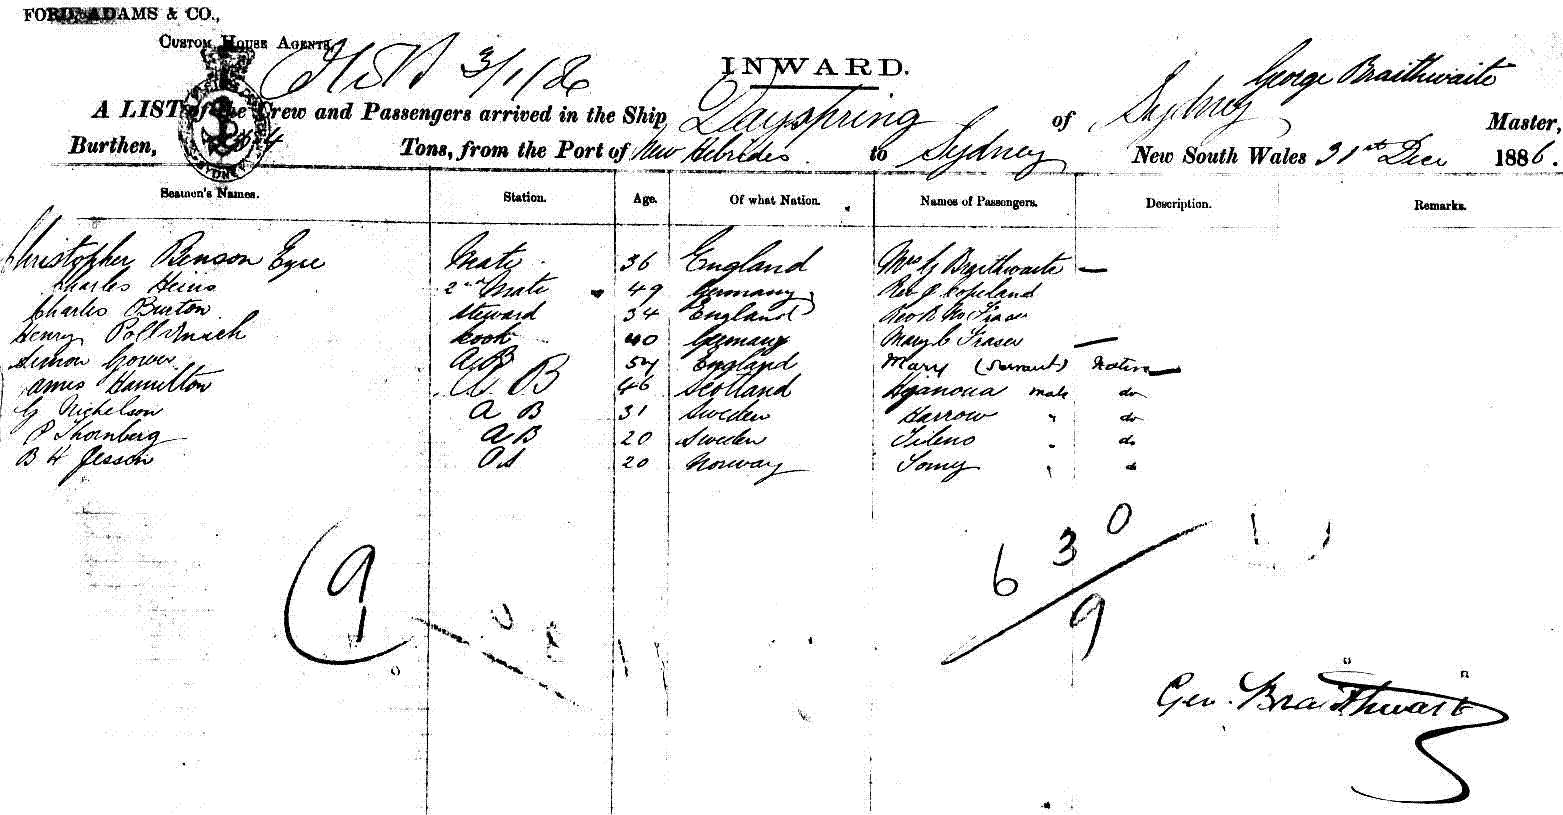 FORD, ADAMS & CO.,
CUSTOM HOUSE AGENTS,
3/1/86
INWARD.
George Braithwaite
A LIST of the Crew and Passengers arrived in the Ship Dayspring of Sydney Master,
Burthen, Tons, from the Port of New Hebrides to Sydney New South Wales 31st Decr 1886.
Seamen's Names. Station. Age. Of what Nation. Names of Passengers. Description. Remarks.
Christopher Benson Eyre Mate 36 England Mrs G Braithwaite
Charles Heins 2nd Mate 49 Germany Rev J Copeland
Charles Burton steward 34 England Fraser
Henry cook 40 Germany Mary C Fraser
Simon Gower A B 54 England Mary (Servant) Native
James Hamilton A B 46 Scotland male do
G Nichelson A B 31 Sweden Harrow " do
P Thornberg A B 20 Sweden Tileno " do
B H Jesson O S 20 Norway Tomy " do
9
6 3 0
9
1
Geo. Braithwaite
SYDNEY